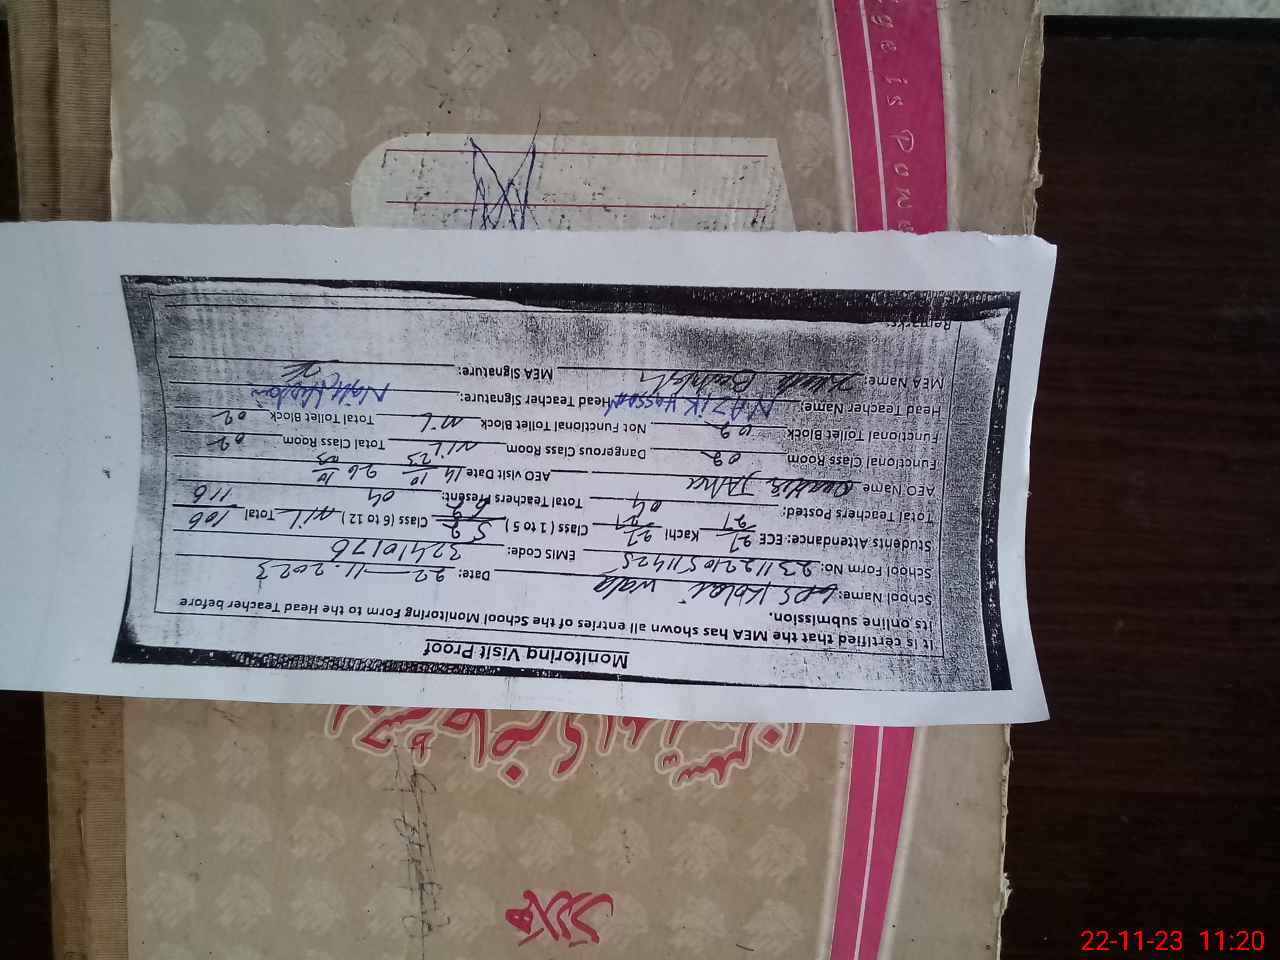 Monitoring Visit Proof
It is certified that the MEA has shown all entries of the School Monitoring Form to the Head Teacher before
its online submission.
School Name: GPS Kolai wala Date: 22-11-2023
School Form No: 23112210511425 EMIS Code: 32410176
Students Attendance: ECE 27/27 Kachi 27/27 Class (1 to 5) 52/62 Class (6 to 12) NIL Total 106/116
Total Teachers Posted: 04 Total Teachers Present: 04
AEO Name AEO visit Date 14/10/23 26/10/23
Functional Class Room 02 Dangerous Class Room NIL Total Class Room 02
Functional Toilet Block 02 Not Functional Toilet Block NIL Total Toilet Block 02
Head Teacher Name: NAZIK HASSAN Head Teacher Signature:
MEA Name: MEA Signature:
Remarks:
ge is Powe
22-11-23 11:20